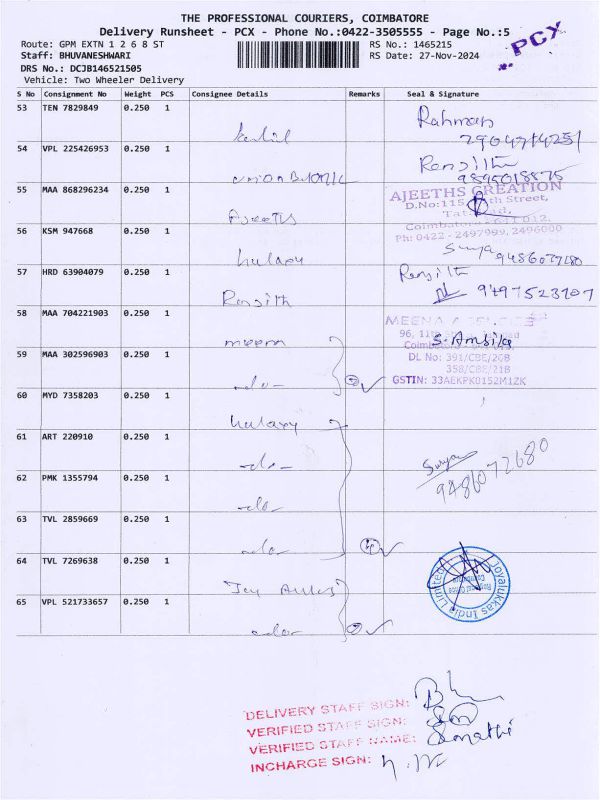 THE PROFESSIONAL COURIERS, COIMBATORE
Delivery Runsheet - PCX - Phone No.:0422-3505555 - Page No.:5
Route: GPM EXTN 1 2 6 8 ST
RS No.: 1465215
PCX
Staff: BHUVANESHWARI
RS Date: 27-Nov-2024
DRS No.: DCJB146521505
Vehicle: Two Wheeler Delivery
S No Consignment No Weight PCS Consignee Details Remarks Seal & Signature
53 TEN 7829849 0.250 1 Rahman
54 VPL 225426953 0.250 1 Renjith
9895018875
55 MAA 868296234 0.250 1 Ajeeths
AJEETHS CREATION
D.No:115 th Street,
Coimbatore - 641 012.
Ph: 0422 - 2497999, 2496000
56 KSM 947668 0.250 1 hulaxy Surya
57 HRD 63904079 0.250 1 Renjith Renjith
58 MAA 704221903 0.250 1 meena
MEENA
96, 11th
S. Ambika
Coimbatore
DL No: 391/CBE/20B
358/CBE/21B
GSTIN: 33AEKPK0152M1ZK
59 MAA 302596903 0.250 1 -do- 2
60 MYD 7358203 0.250 1 hulaxy
61 ART 220910 0.250 1 -do- Surya
9486072680
62 PMK 1355794 0.250 1 -do-
63 TVL 2859669 0.250 1 -do- 4
64 TVL 7269638 0.250 1
Joyalukkas India Limited
65 VPL 521733657 0.250 1 -do- 2
DELIVERY STAFF SIGN:
VERIFIED STAFF SIGN:
VERIFIED STAFF NAME: Sonathi
INCHARGE SIGN: